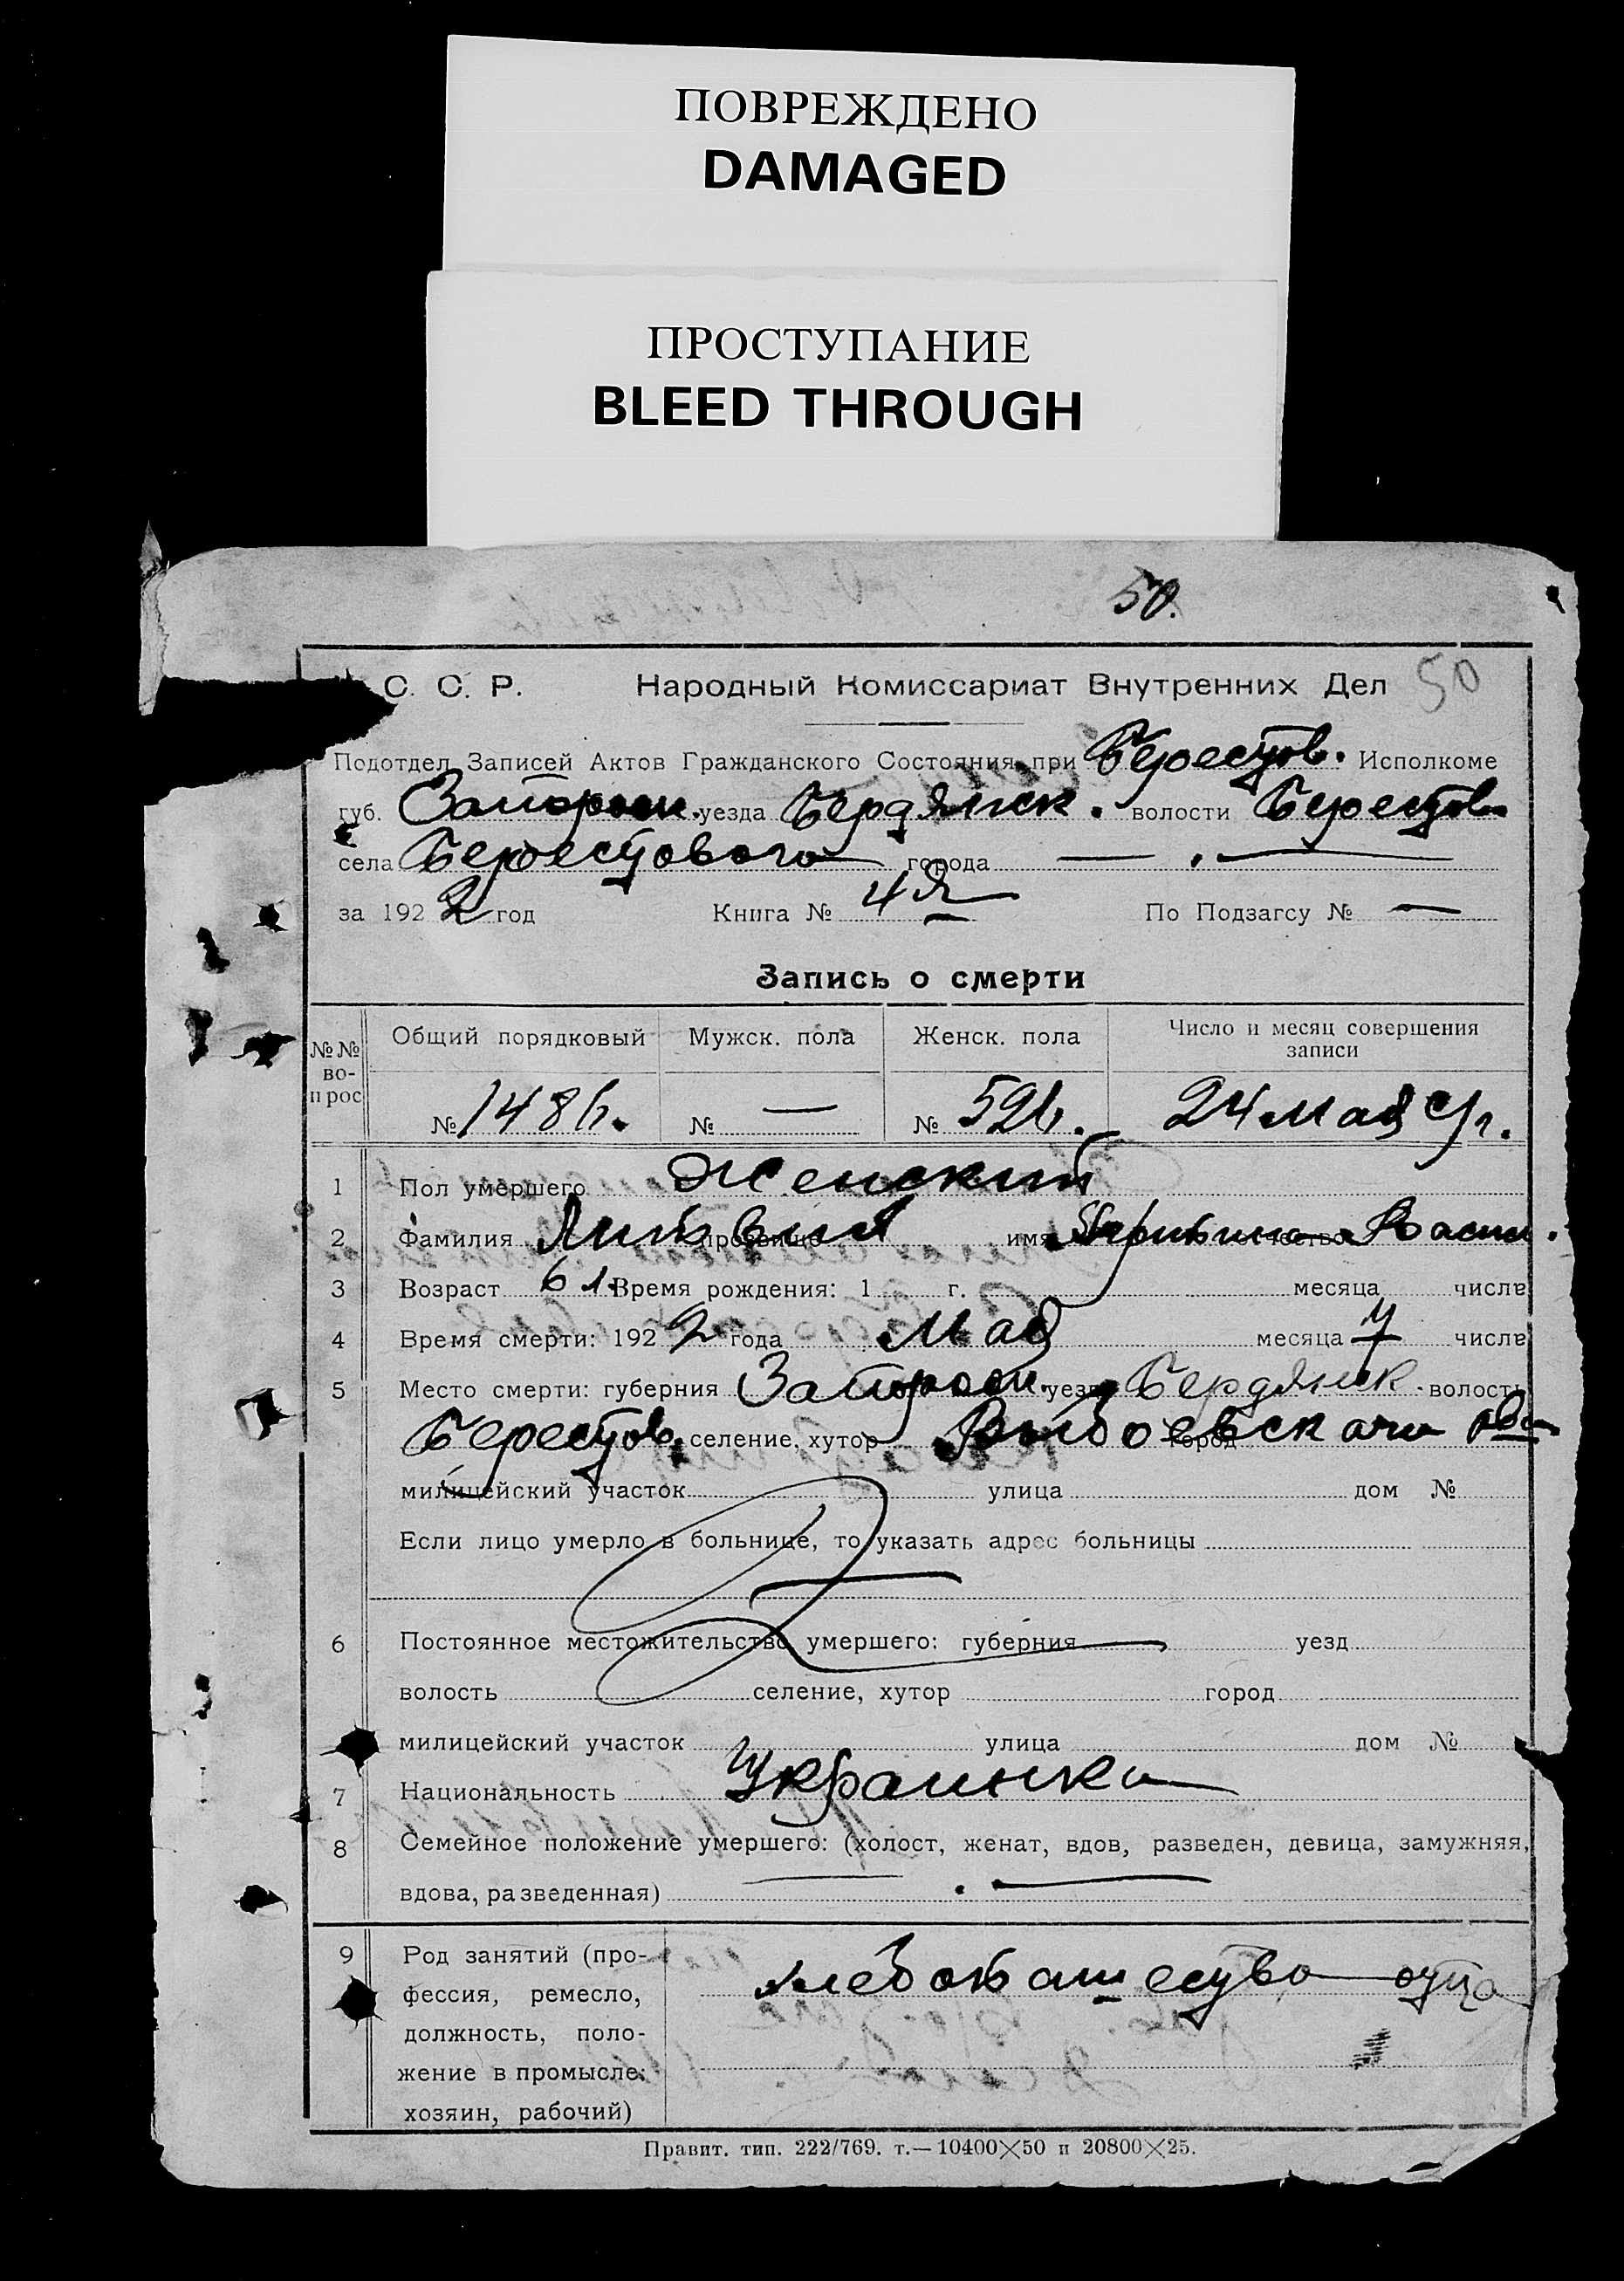 ПОВРЕЖДЕНО
DAMAGED
ПРОСТУПАНИЕ
BLEED THROUGH
50.
С. С. Р. Народный Комиссариат Внутренних Дел 50
Подотдел Записей Актов Гражданского Состояния при Берестов. Исполкоме
губ. Запорож. уезда Бердянск. волости Берестов.
села Берестового города —
за 1922 год Книга № 4я По Подзагсу № —
Запись о смерти
№№ вопрос Общий порядковый Мужск. пола Женск. пола Число и месяц совершения записи
№ 1486. № — № 526. 24 Мая с/г.
1 Пол умершего Женский
2 Фамилия Литвин прозвище имя отчество Васил.
3 Возраст 61. Время рождения: 1 г. месяца числа
4 Время смерти: 1922 года Мая месяца 7 числа
5 Место смерти: губерния Запорож. уезд Бердянск. волость
Берестов. селение, хутор город
милицейский участок улица дом №
Если лицо умерло в больнице, то указать адрес больницы
6 Постоянное местожительство умершего: губерния — уезд
волость селение, хутор город
милицейский участок улица дом №
7 Национальность Украинка
8 Семейное положение умершего: (холост, женат, вдов, разведен, девица, замужняя,
вдова, разведенная) —
9 Род занятий (про-
фессия, ремесло, хлебопашество отца
должность, поло-
жение в промысле:
хозяин, рабочий)
Правит. тип. 222/769. т.—10400×50 и 20800×25.